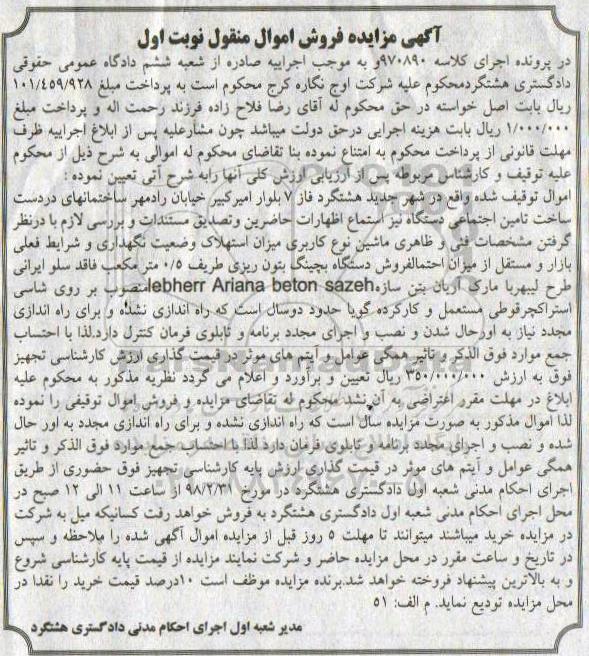 آگهی مزایده فروش اموال منقول نوبت اول
در پرونده اجرای کلاسه ۹۷۰۸۹۰و به موجب اجراییه صادره از شعبه ششم دادگاه عمومی حقوقی
دادگستری هشتگردمحکوم علیه شرکت اوج نگاره کرج محکوم است به پرداخت مبلغ ۱۰۱/۴۵۹/۹۲۸
ریال بابت اصل خواسته در حق محکوم له آقای رضا فلاح زاده فرزند رحمت اله و پرداخت مبلغ
۱/۰۰۰/۰۰۰ ریال بابت هزینه اجرایی درحق دولت میباشد چون مشارعلیه پس از ابلاغ اجراییه ظرف
مهلت قانونی از پرداخت محکوم به امتناع نموده بنا تقاضای محکوم له اموالی به شرح ذیل از محکوم
علیه توقیف و کارشناس مربوطه پس از ارزیابی ارزش کلی آنها رابه شرح آتی تعیین نموده :
اموال توقیف شده واقع در شهر جدید هشتگرد فاز ۷ بلوار امیرکبیر خیابان رادمهر ساختمانهای دردست
ساخت تامین اجتماعی دستگاه نیز استماع اظهارات حاضرین وتصدیق مستندات و بررسی لازم با درنظر
گرفتن مشخصات فنی و ظاهری ماشین نوع کاربری میزان استهلاک وضعیت نگهداری و شرایط فعلی
بازار و مستقل از میزان احتمالفروش دستگاه بچینگ بتون ریزی ظریف ۰/۵ متر مکعب فاقد سلو ایرانی
طرح لیبهربا مارک آریان بتن سازه lebherr Ariana beton sazeh منصوب بر روی شاسی
استراکچرقوطی مستعمل و کارکرده گویا حدود دوسال است که راه اندازی نشده و برای راه اندازی
مجدد نیاز به اورحال شدن و نصب و اجرای مجدد برنامه و تابلوی فرمان کنترل دارد.لذا با احتساب
جمع موارد فوق الذکر و تاثیر همگی عوامل و آیتم های موثر در قیمت گذاری ارزش کارشناسی تجهیز
فوق به ارزش ۳۵۰/۰۰۰/۰۰۰ ریال تعیین و برآورد و اعلام می گردد نظریه مذکور به محکوم علیه
ابلاغ در مهلت مقرر اعتراضی به آن نشد محکوم له تقاضای مزایده و فروش اموال توقیفی را نموده
لذا اموال مذکور به صورت مزایده سال است که راه اندازی نشده و برای راه اندازی مجدد به اور حال
شده و نصب و اجرای مجدد برنامه و تابلوی فرمان دارد لذا با احتساب جمع موارد فوق الذکر و تاثیر
همگی عوامل و آیتم های موثر در قیمت گذاری ارزش پایه کارشناسی تجهیز فوق حضوری از طریق
اجرای احکام مدنی شعبه اول دادگستری هشتگرد در مورخ ۹۸/۲/۳۱ از ساعت ۱۱ الی ۱۲ صبح در
محل اجرای احکام مدنی شعبه اول دادگستری هشتگرد به فروش خواهد رفت کسانیکه میل به شرکت
در مزایده خرید میباشند میتوانند تا مهلت ۵ روز قبل از مزایده اموال آگهی شده را ملاحظه و سپس
در تاریخ و ساعت مقرر در محل مزایده حاضر و شرکت نمایند مزایده از قیمت پایه کارشناسی شروع
و به بالاترین پیشنهاد فروخته خواهد شد.برنده مزایده موظف است ۱۰درصد قیمت خرید را نقدا در
محل مزایده تودیع نماید. م الف: ۵۱
مدیر شعبه اول اجرای احکام مدنی دادگستری هشتگرد